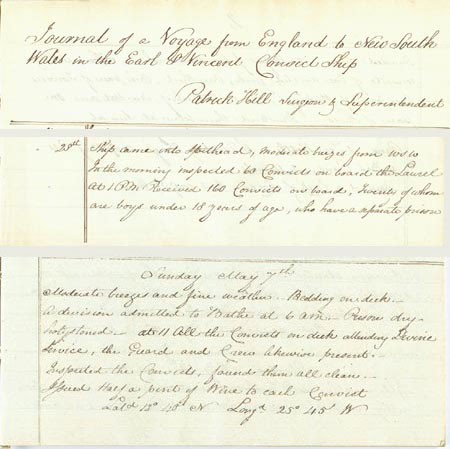 Journal of a Voyage from England to New South
Wales in the Earl St Vincent Convict Ship
Patrick Hill Surgeon & Superintendent
28th Ship came into Spithead, moderate breezes from WSW
In the morning inspected 60 Convicts on board the Laurel
At 1 P.M. Received 160 Convicts on board, Twenty of whom
are boys under 18 years of age, who have a separate prison
Sunday May 7th
Moderate breezes and fine weather. Bedding on deck
A division admitted to Bathe at 6 am. Prison dry
holystoned. at 11 All the Convicts on deck attending Divine
Service, the Guard and Crew likewise present.
Inspected the Convicts, found them all clean
Issued half a pint of Wine to each Convict
Latd 13° N Longd 25° 45' W